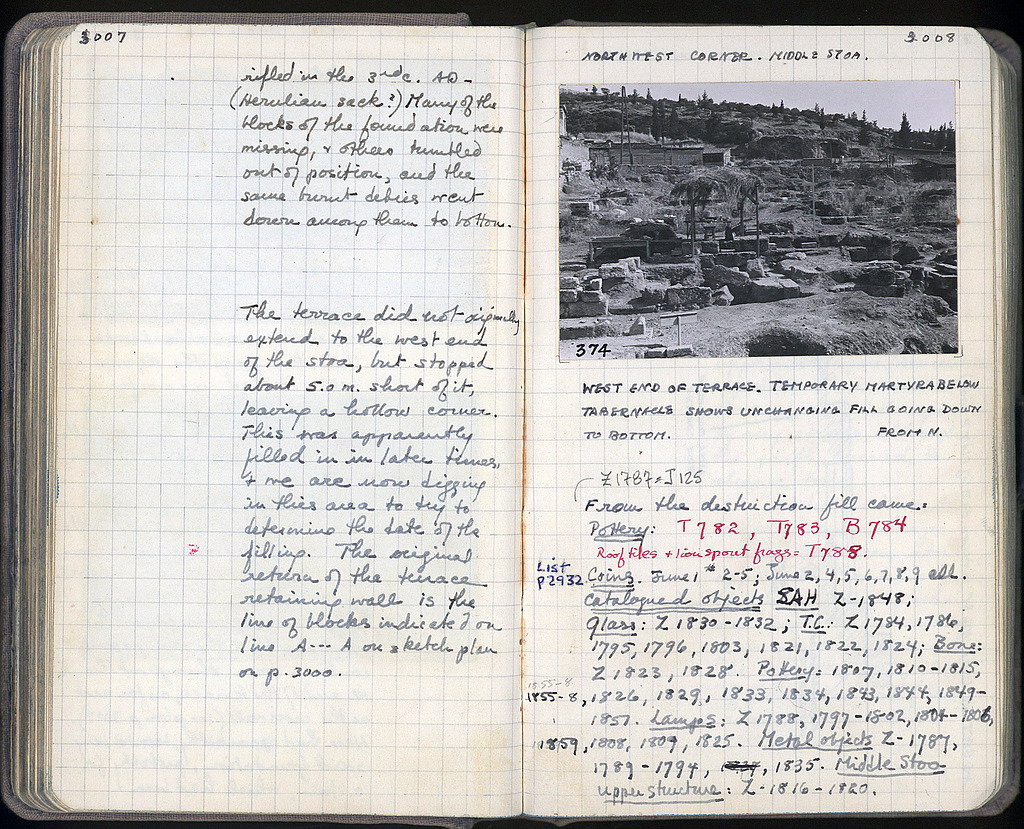 3007
rifled in the 3rd c. AD –
(Herulian sack?) Many of the
blocks of the foundation were
missing, & others tumbled
out of position, and the
same burnt debris went
down among them to bottom.
The terrace did not originally
extend to the west end
of the stoa, but stopped
about 5.0 m. short of it,
leaving a hollow corner.
This was apparently
filled in in later times,
& we are now digging
in this area to try to
determine the date of the
filling. The original
return of the terrace
retaining wall is the
line of blocks indicated on
line A---A on sketch plan
on p. 3000.
3008
NORTHWEST CORNER. MIDDLE STOA.
374
WEST END OF TERRACE. TEMPORARY MARTYRA BELOW
TABERNACLE SHOWS UNCHANGING FILL GOING DOWN
TO BOTTOM. FROM N.
Z1787=J125
From the destruction fill came:
Pottery: T782, T783, B784
Rooftiles + lion spout frags = T788.
List
p2932
Coins. June 1 # 2-5; June 2, 4, 5, 6, 7, 8, 9 all.
Catalogued objects SAH Z-1848;
Glass: Z 1830-1832; T.C.: Z 1784, 1786,
1795, 1796, 1803, 1821, 1822, 1824; Bone:
Z 1823, 1828. Pottery: 1807, 1810-1815,
1855-8
1855-8, 1826, 1829, 1833, 1834, 1843, 1844, 1849-
1857. Lamps: Z 1788, 1797-1802, 1804-1806,
1859, 1808, 1809, 1825. Metal objects Z-1787,
1789-1794, 1835. Middle Stoa
upper structure: Z-1816-1820.